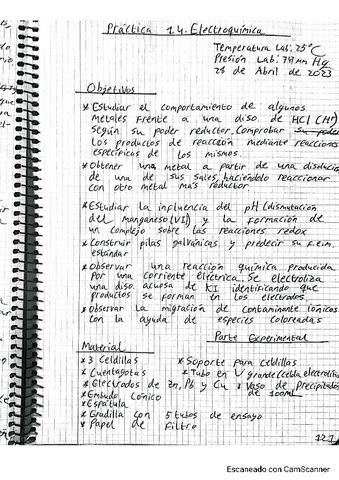 Práctica 14. Electroquímica
Temperatura Lab: 25°C
Presión Lab: mm Hg
28 de Abril de 2023
Objetivos
* Estudiar el comportamiento de algunos
metales frente a una diso. de HCl (H⁺)
según su poder reductor. Comprobar su poder
los productos de reacción mediante reacciones
específicas de los mismos
* Obtener un metal a partir de una disolución
de una de sus sales, haciéndolo reaccionar
con otro metal más reductor
* Estudiar la influencia del pH (dismutación
del manganeso(VI)) y la formación de
un complejo sobre las reacciones redox
* Construir pilas galvánicas y predecir su f.e.m.
estándar
* Observar una reacción química producida
por una corriente eléctrica. Se electroliza
una diso. acuosa de KI identificando que
productos se forman en los electrodos.
* Observar la migración de contaminante iónicos
con la ayuda de especies coloreadas
Parte Experimental
Material
* 3 Celdillas
* Cuentagotas
* Electrodos de Zn, Pb y Cu
* Embudo cónico
* Espátula
* Gradilla con 5 tubos de ensayo
* Papel de filtro
* Soporte para celdillas
* Tubo en U grande (celda electrolítica)
* Vaso de precipitados
de 100mL
121
Escaneado con CamScanner